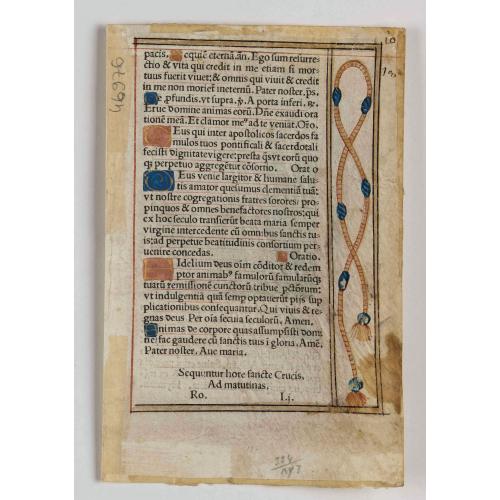 pacis. equiē eternā.añ. Ego sum resurre-
ctio & vita qui credit in me etiam si mor-
tuus fuerit viuet; & omnis qui viuit & credit
in me non morieť ineternū. Pater noster. p̄s.
e pfundis. vt supra. A porta inferi.
Erue domine animas eorū. Dñe exaudi ora
tionē meā. Et clamor meꝰ ad te veniat. Orō.
Eus qui inter apostolicos sacerdos fa
mulos tuos pontificali & sacerdotali
fecisti dignitate vigere: presta qs̄ vt eorū quo
qꝫ perpetuo aggregētur cōsortio. Orat o
Eus venie largitor & humane salu-
tis amator quesumus clementiā tuā:
vt nostre cōgregationis fratres sorores: pro-
pinquos & omnes benefactores nostros: qui
ex hoc seculo transierūt beata maria semper
virgine intercedente cū omnibus sanctis tu
is: ad perpetue beatitudinis consortium per-
uenire concedas. Oratio.
Idelium deus oīm cōditor & redem
ptor animabꝰ famulorū famularūqꝫ
tuarū remissionē cunctorū tribue pctōrum:
vt indulgentiā quā semp optauerūt pijs sup
plicationibus consequantur. Qui viuis & re-
gnas deus Per oīa secula seculorū. Amen.
Animas de corpore quas assumpsisti domi
ne: fac gaudere cū sanctis tuis ī gloria. Amē.
Pater noster. Aue maria.
Sequuntur hore sancte Crucis.
Ad matutinas.
Ro. l.j.
46976